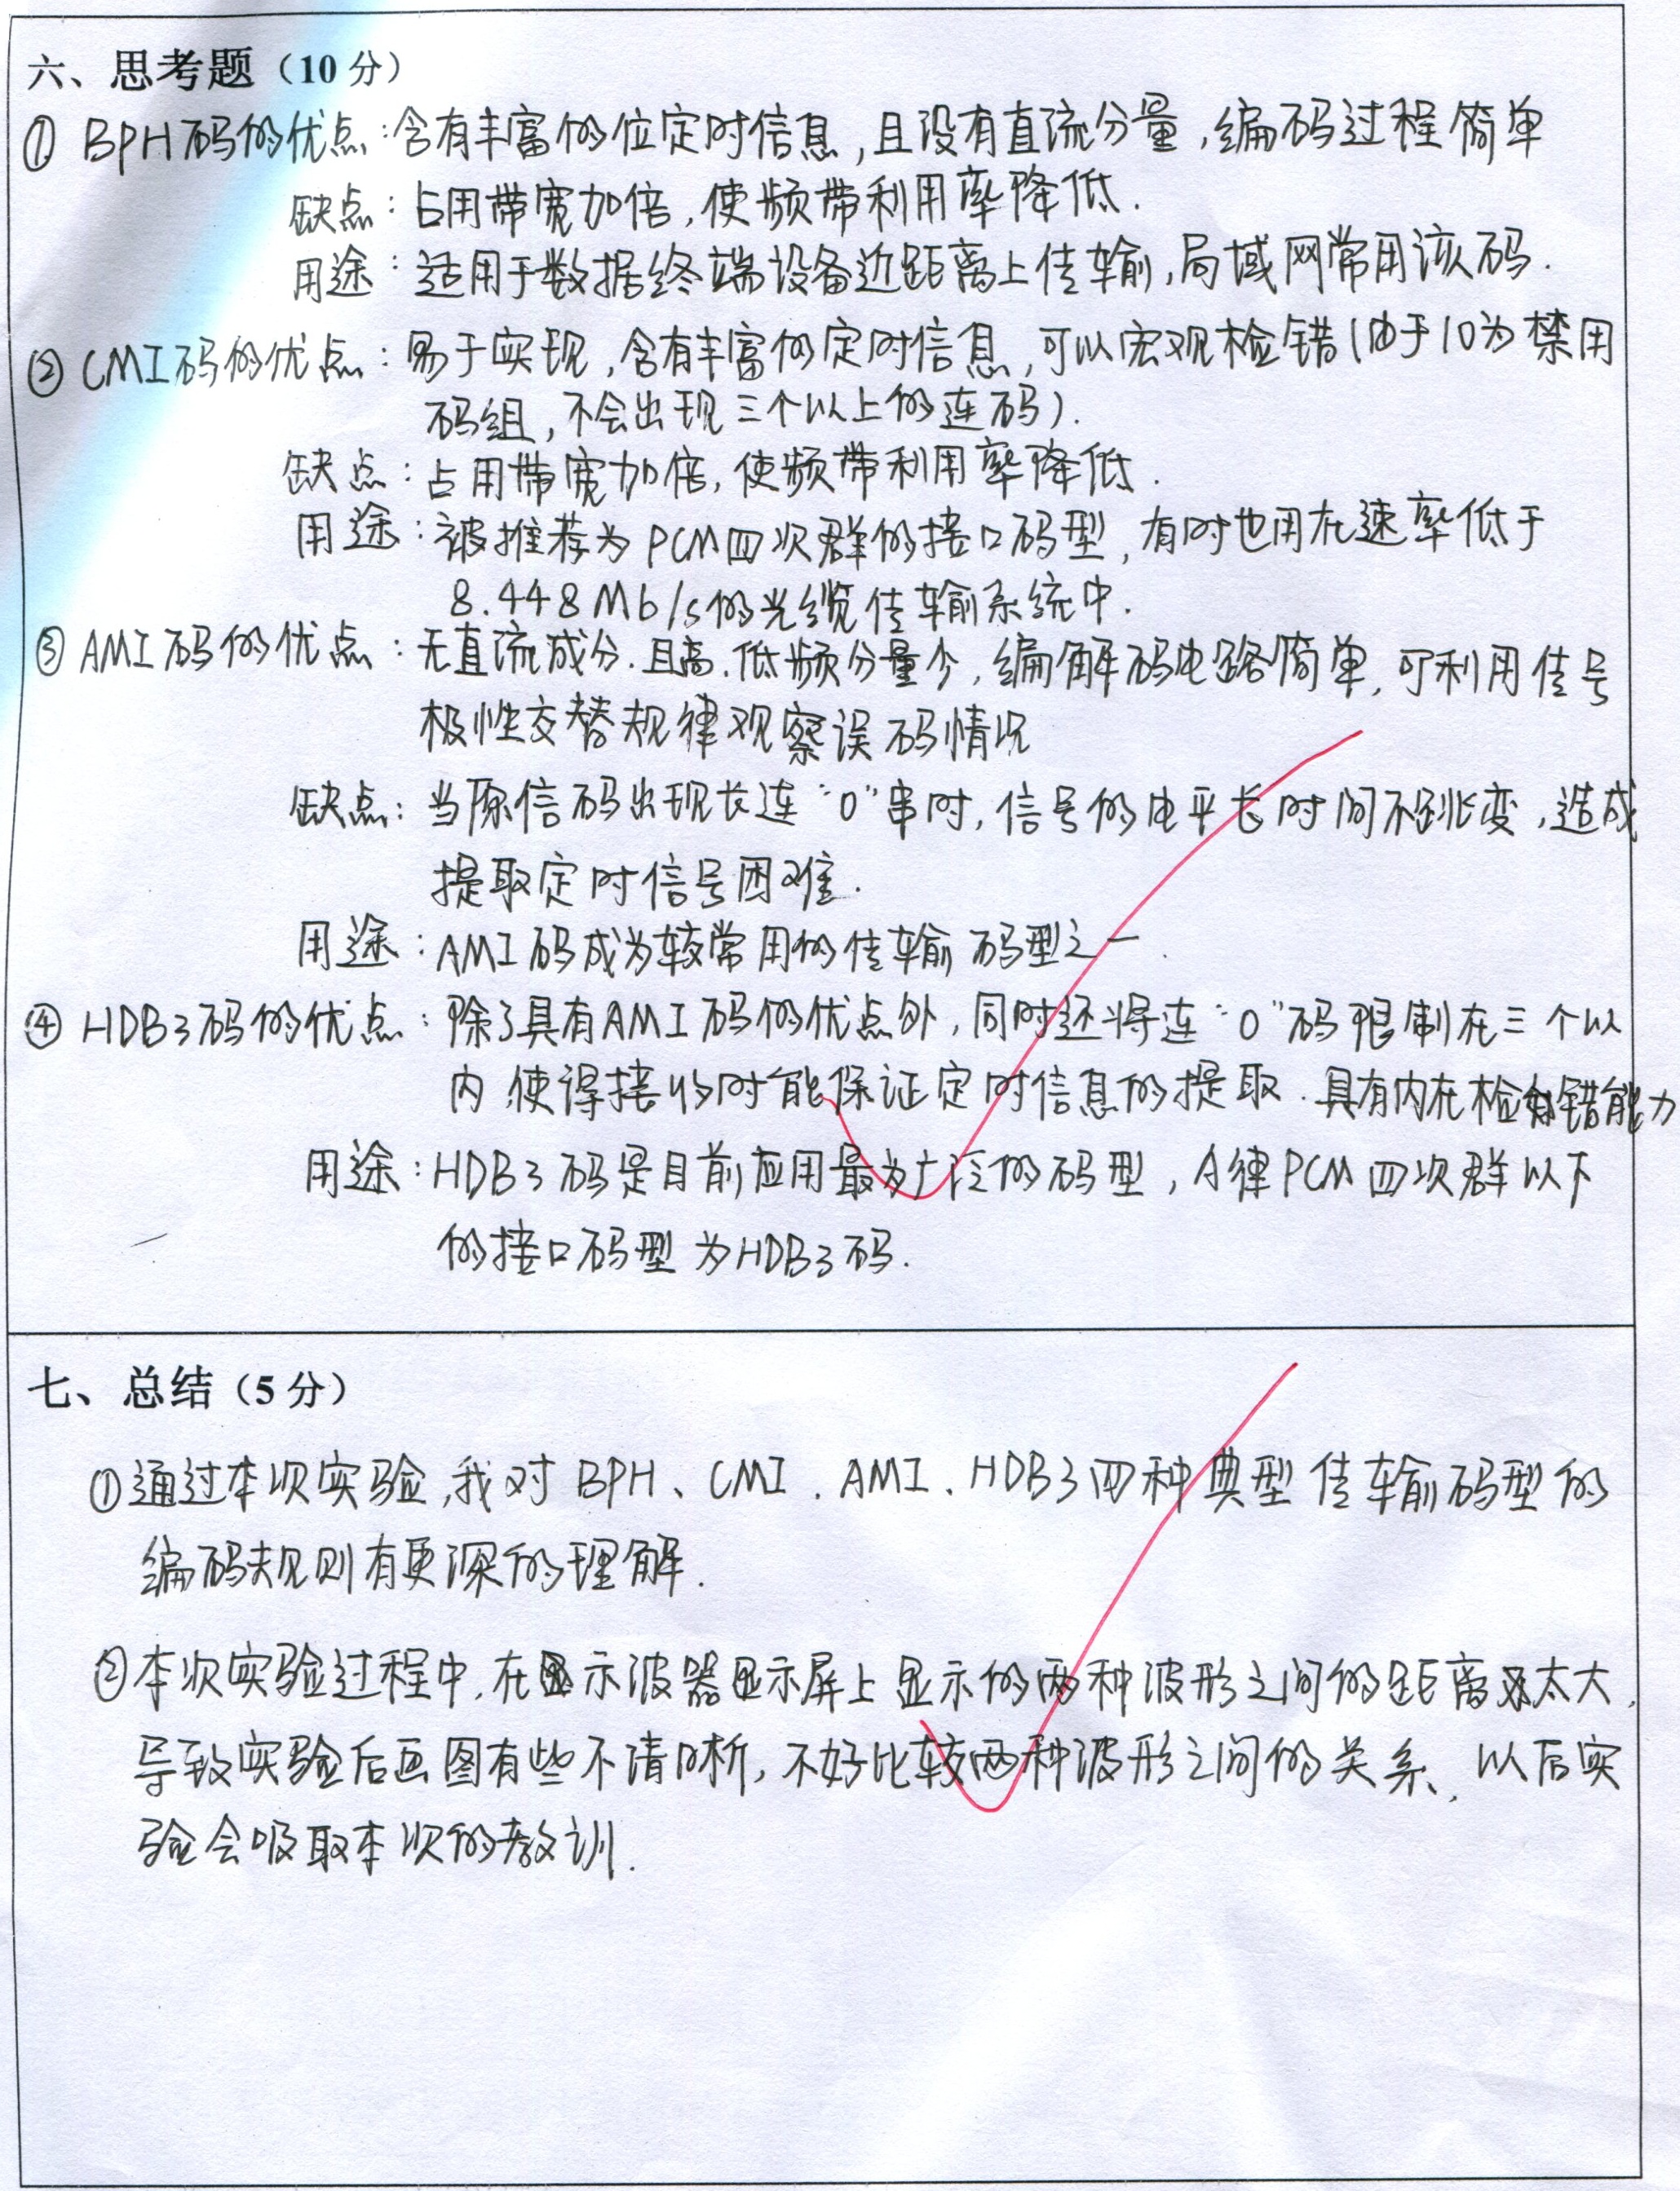 六、思考题（10 分）
① BPH码的优点：含有丰富的位定时信息，且没有直流分量，编码过程简单
缺点：占用带宽加倍，使频带利用率降低.
用途：适用于数据终端设备近距离上传输，局域网常用该码.
② CMI码的优点：易于实现，含有丰富的定时信息，可以宏观检错（由于10为禁用
码组，不会出现三个以上的连码）.
缺点：占用带宽加倍，使频带利用率降低.
用途：被推荐为PCM四次群的接口码型，有时也用在速率低于
8.448Mb/s的光缆传输系统中.
③ AMI码的优点：无直流成分.且高.低频分量少，编解码电路简单，可利用传号
极性交替规律观察误码情况
缺点：当原信码出现长连“0”串时，信号的电平长时间不跳变，造成
提取定时信号困难.
用途：AMI码成为较常用的传输码型之一.
④ HDB3码的优点：除了具有AMI码的优点外，同时还将连“0”码限制在三个以
内，使得接收时能保证定时信息的提取.具有内在检错能力
用途：HDB3码是目前应用最为广泛的码型，A律PCM四次群以下
的接口码型为HDB3码.
七、总结（5 分）
①通过本次实验，我对BPH、CMI、AMI、HDB3四种典型传输码型的
编码规则有更深的理解.
②本次实验过程中，在示波器显示屏上显示的两种波形之间的距离太大，
导致实验后画图有些不清晰，不好比较两种波形之间的关系、以后实
验会吸取本次的教训.